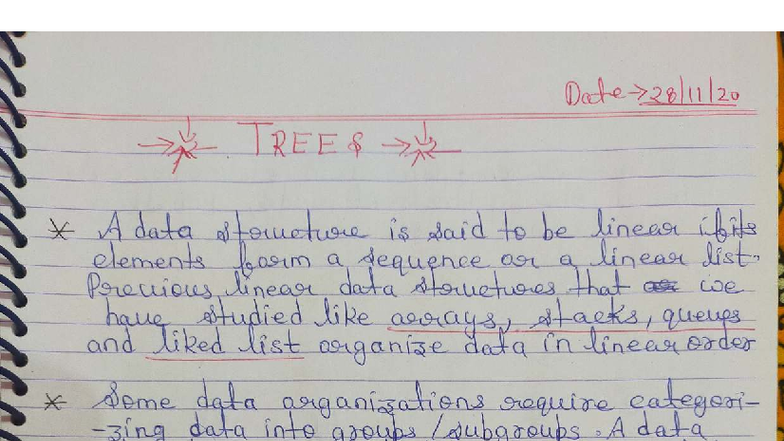 Date → 28/11/20
TREES
* A data structure is said to be linear if its
elements form a sequence or a linear list.
Previous linear data structures that we
have studied like arrays, stacks, queues
and liked list organize data in linear order
* Some data organizations require categori-
-zing data into groups/subgroups. A data